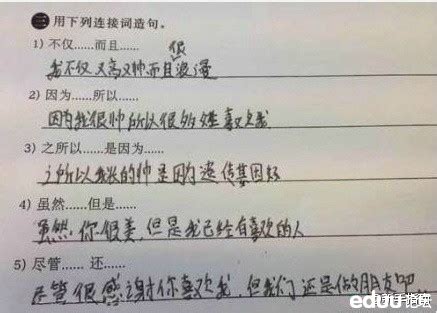 三 用下列连接词造句。
1) 不仅……而且……
我不仅又高又帅而且很浪漫
2) 因为……所以……
因为我很帅所以很多女生喜欢我
3) 之所以……是因为……
之所以我长的帅是因为遗传基因好
4) 虽然……但是……
虽然你很美,但是我已经有喜欢的人
5) 尽管…… 还……
尽管很感谢你喜欢我,但我们还是做朋友吧
eduu